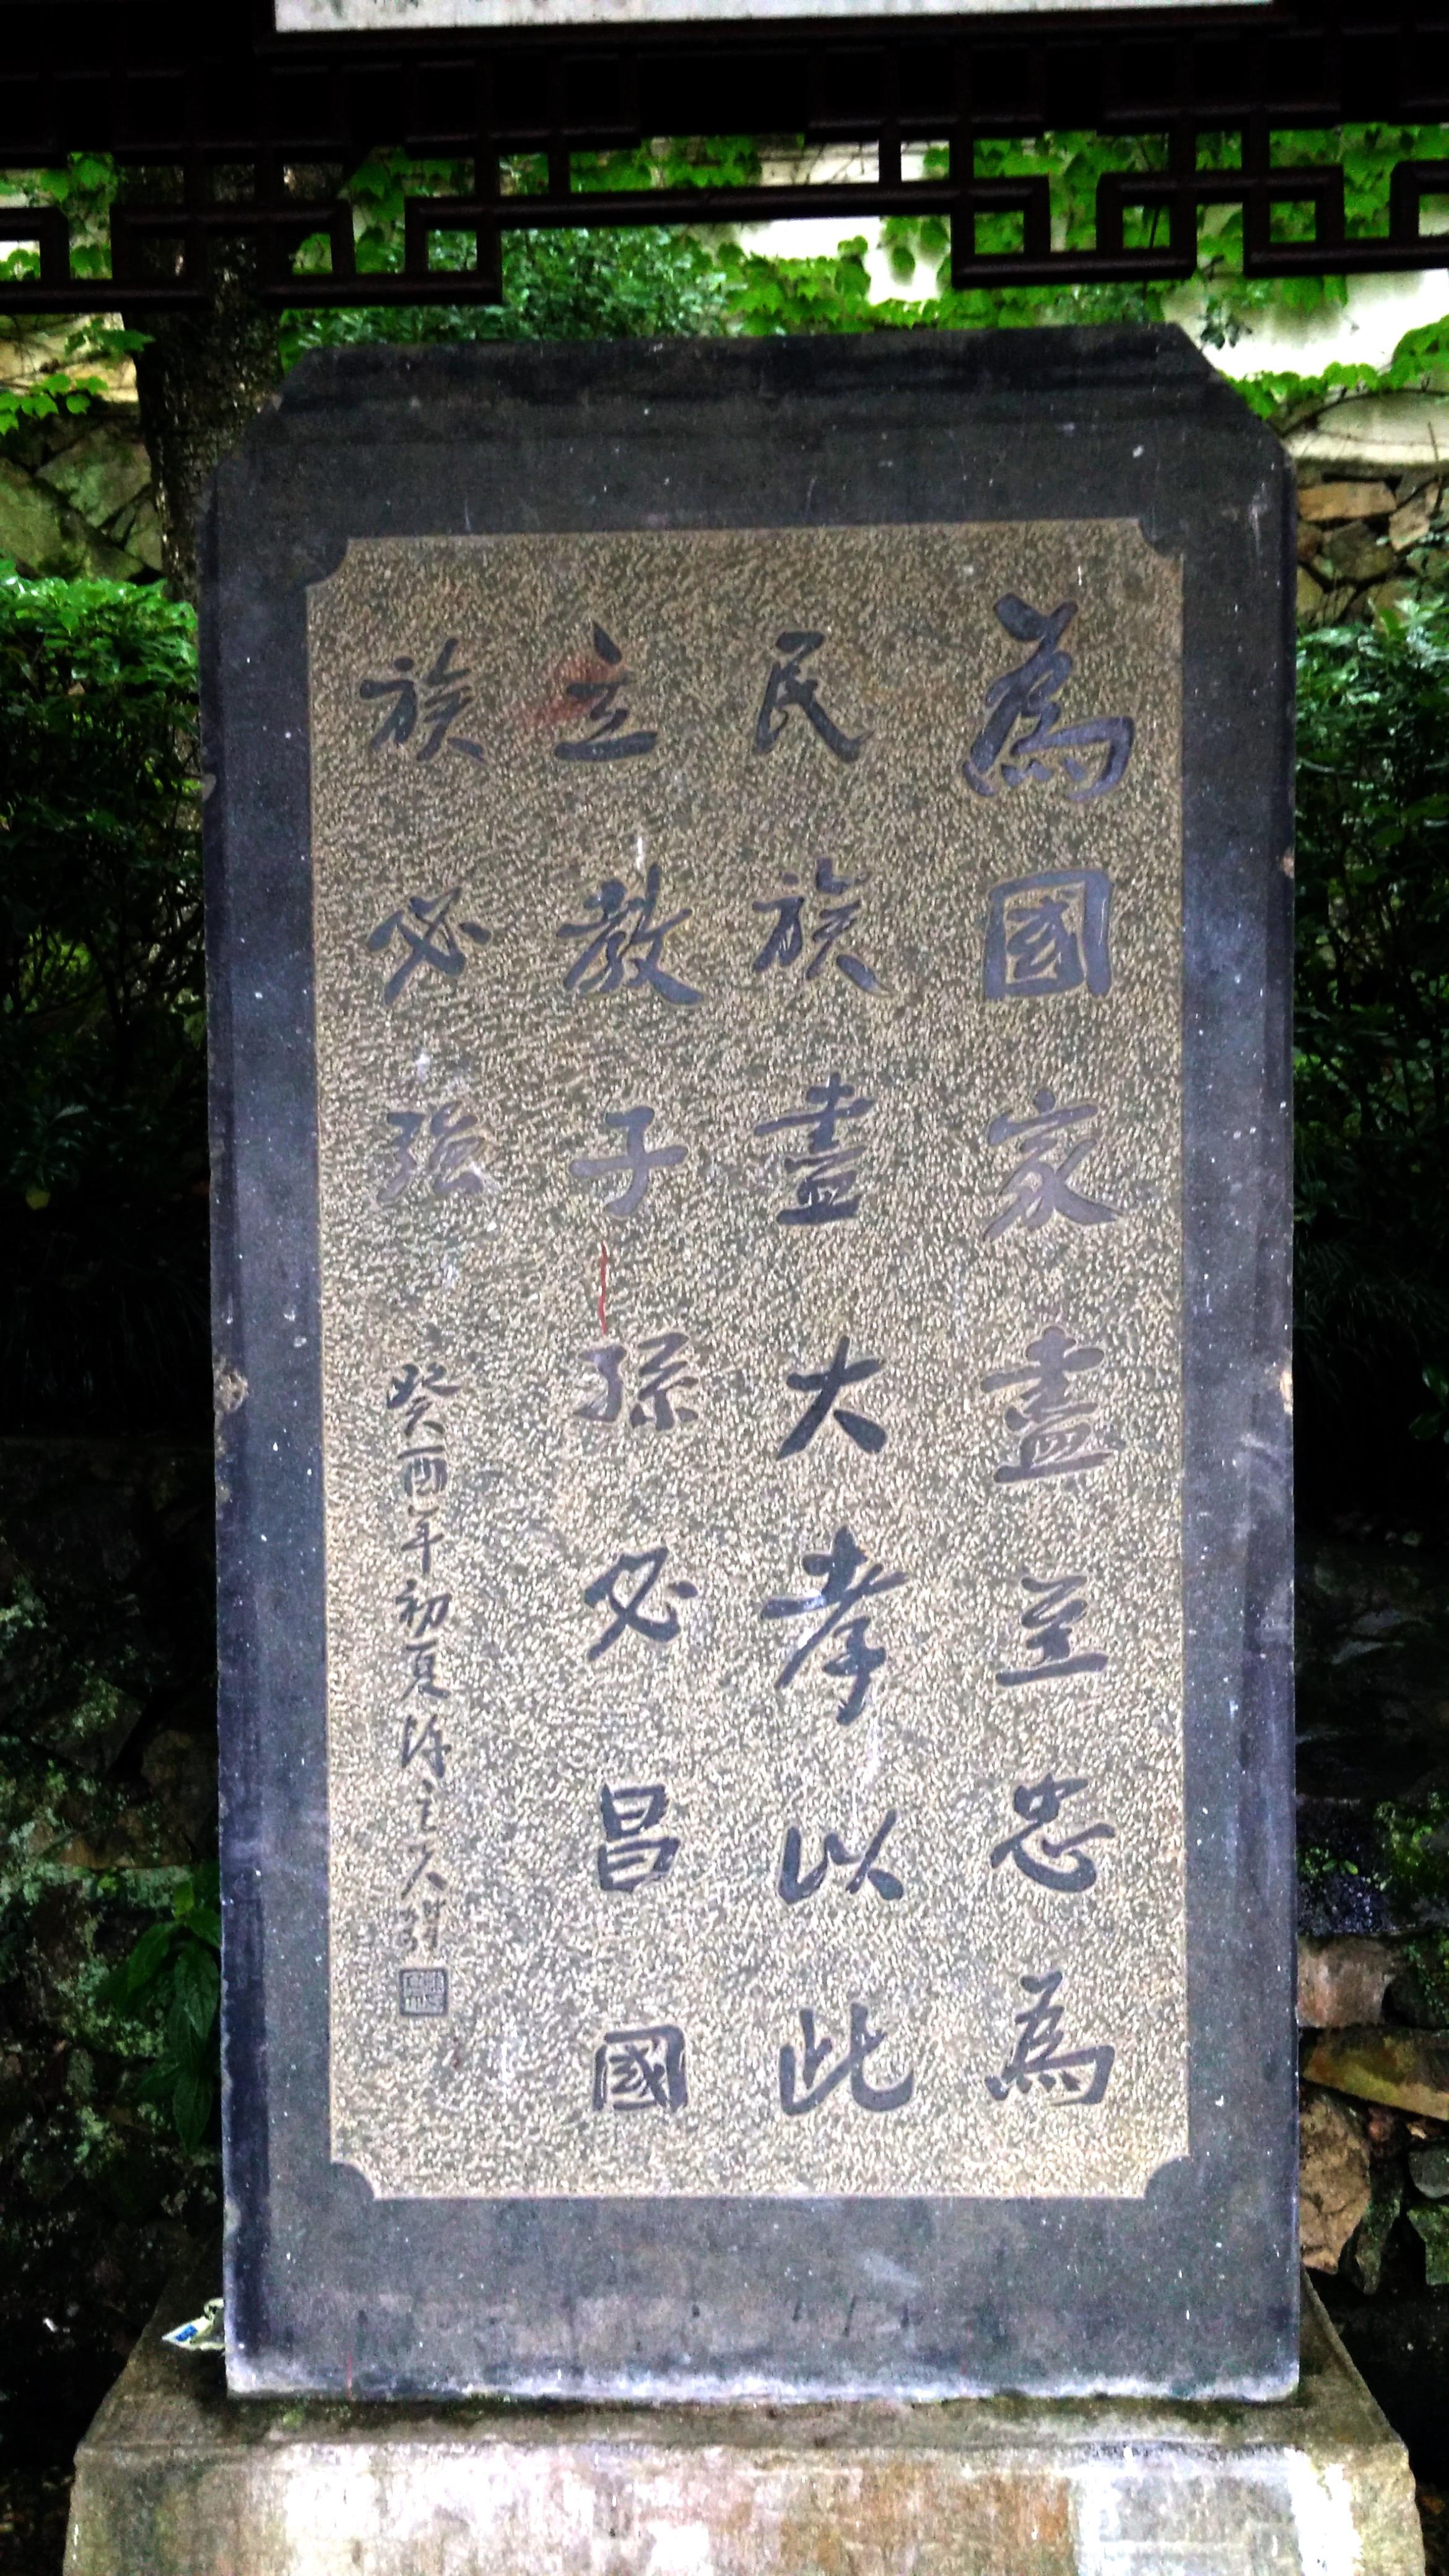 為國家盡至忠為
民族盡大孝以此
立教子孫必昌國
族必強
癸酉年初夏